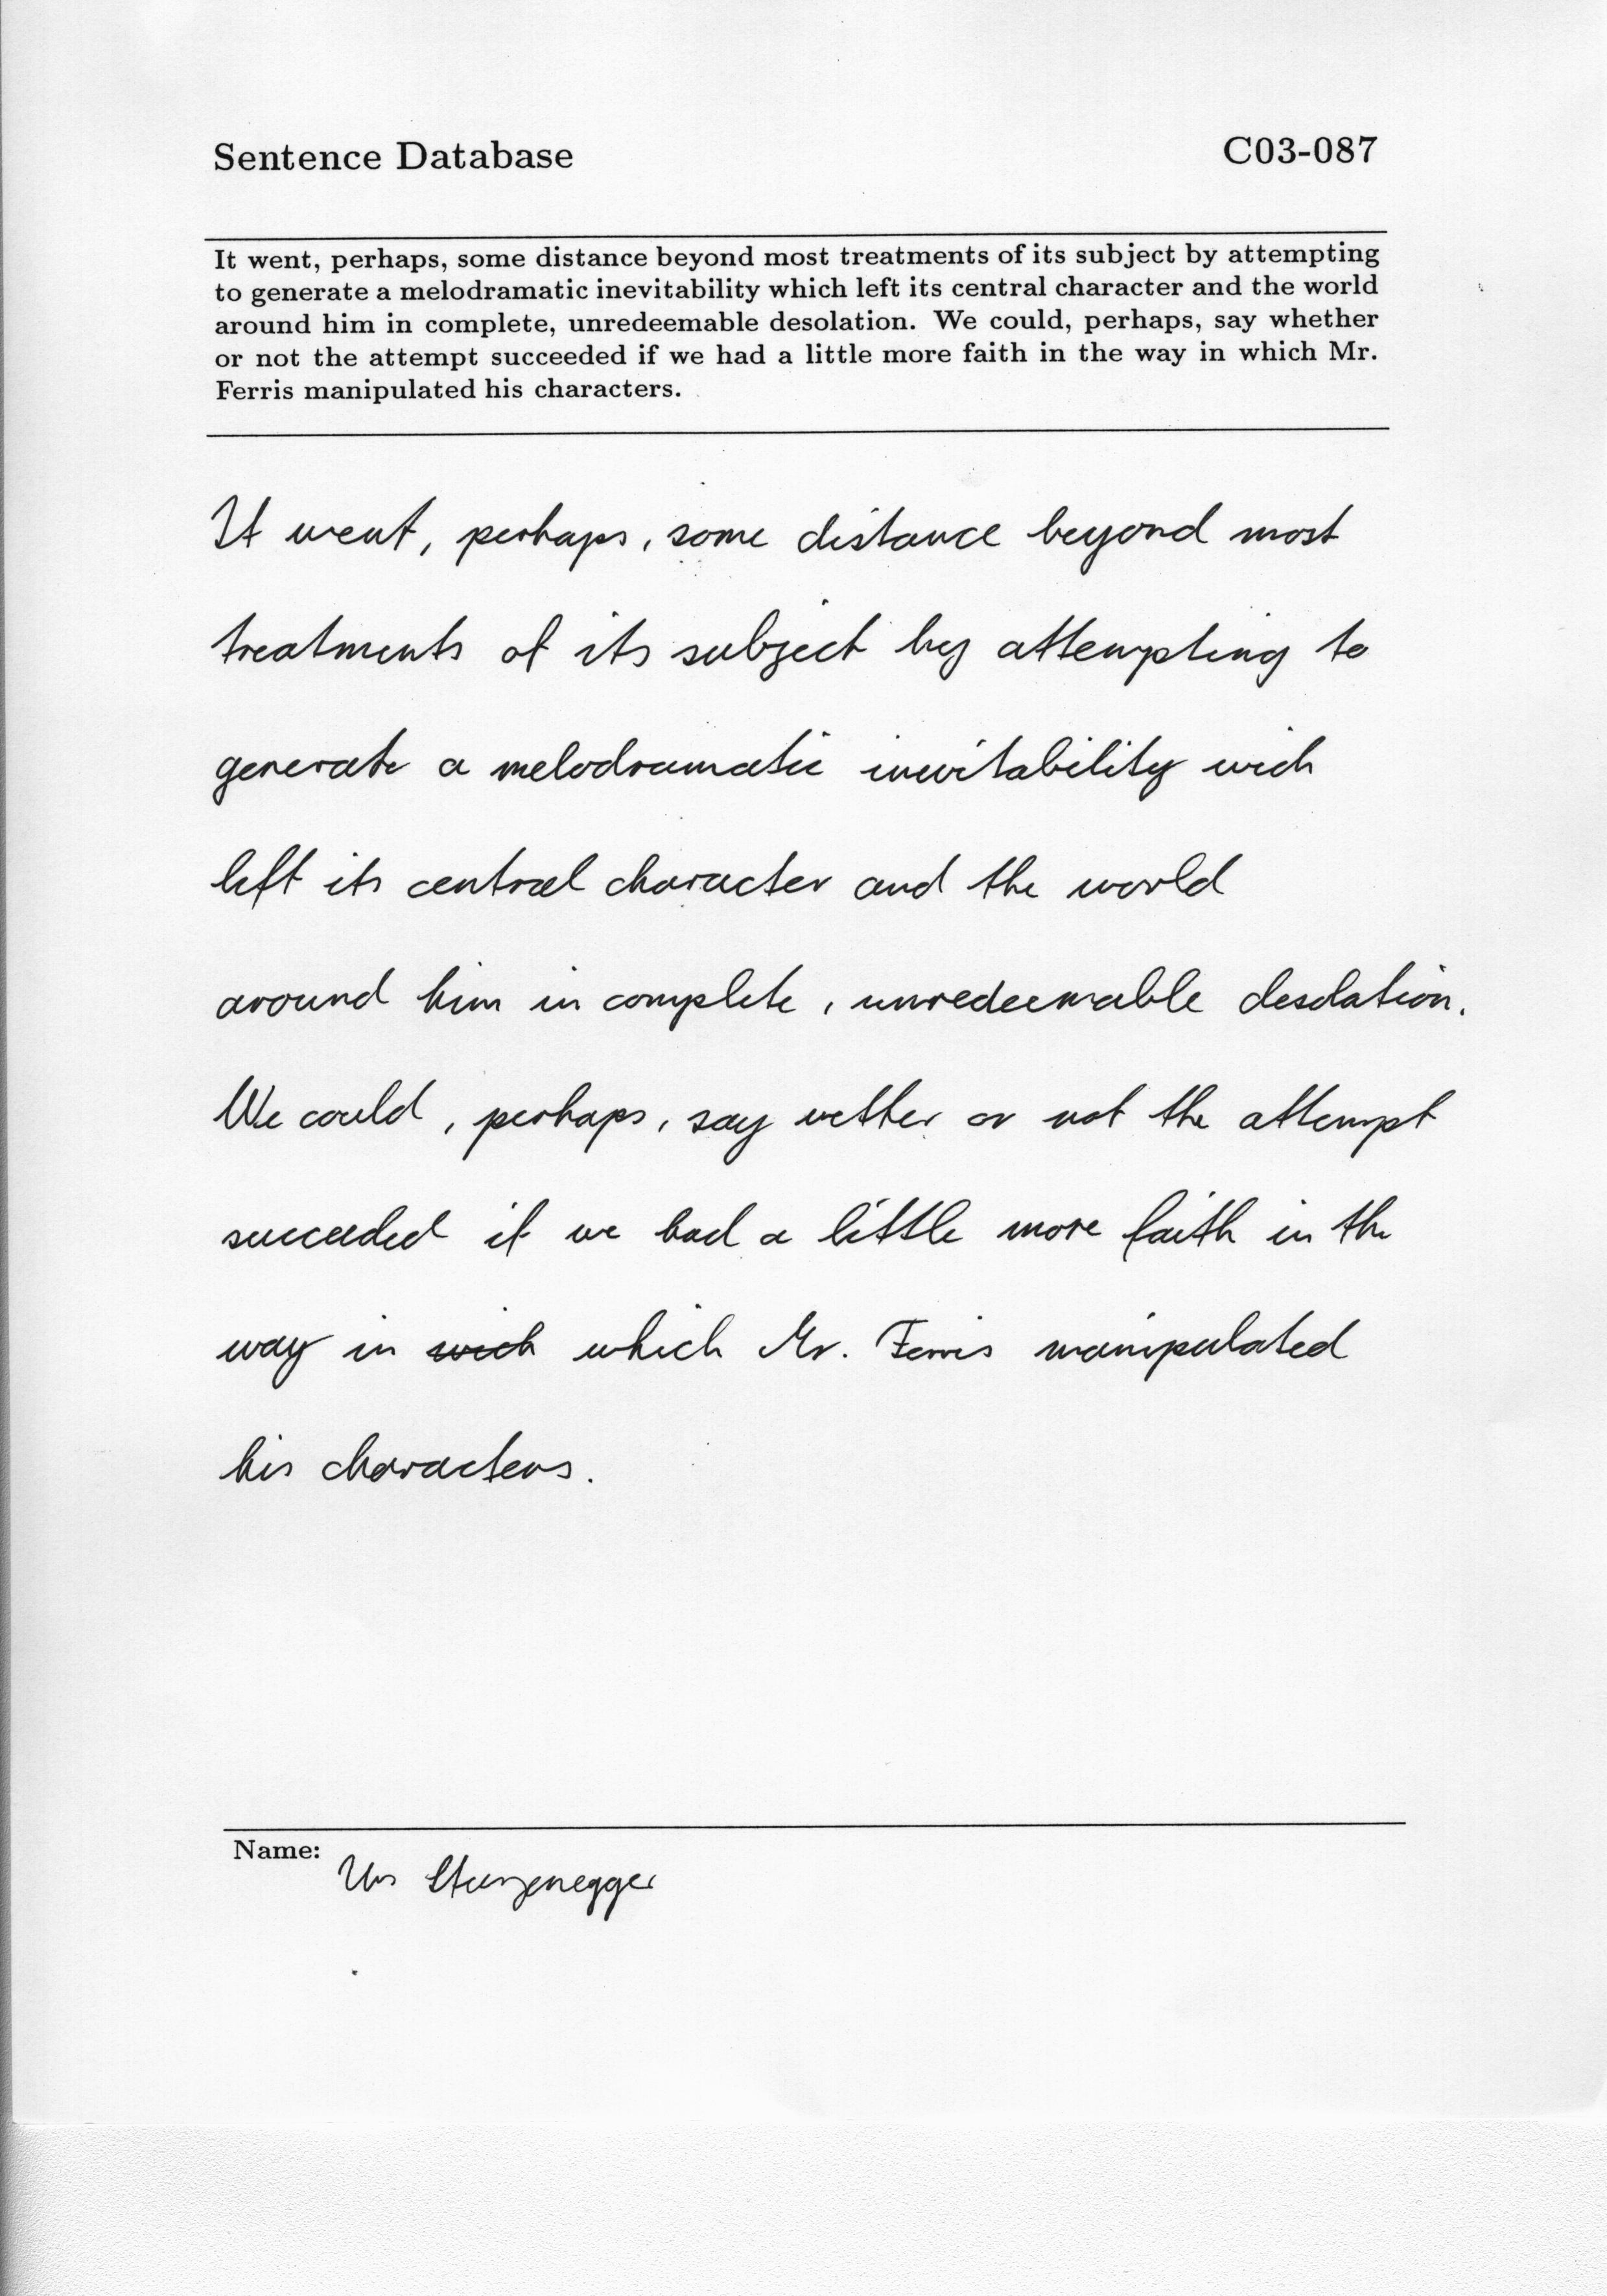 Sentence Database
C03-087
It went, perhaps, some distance beyond most treatments of its subject by attempting
to generate a melodramatic inevitability which left its central character and the world
around him in complete, unredeemable desolation. We could, perhaps, say whether
or not the attempt succeeded if we had a little more faith in the way in which Mr.
Ferris manipulated his characters.
It went, perhaps, some distance beyond most
treatments of its subject by attempting to
generate a melodramatic inevitability wich
left its central character and the world
around him in complete, unredeemable desolation.
We could, perhaps, say wether or not the attempt
succeeded if we had a little more faith in the
way in wich which Mr. Ferris manipulated
his characters.
Name:
Urs Sturzenegger